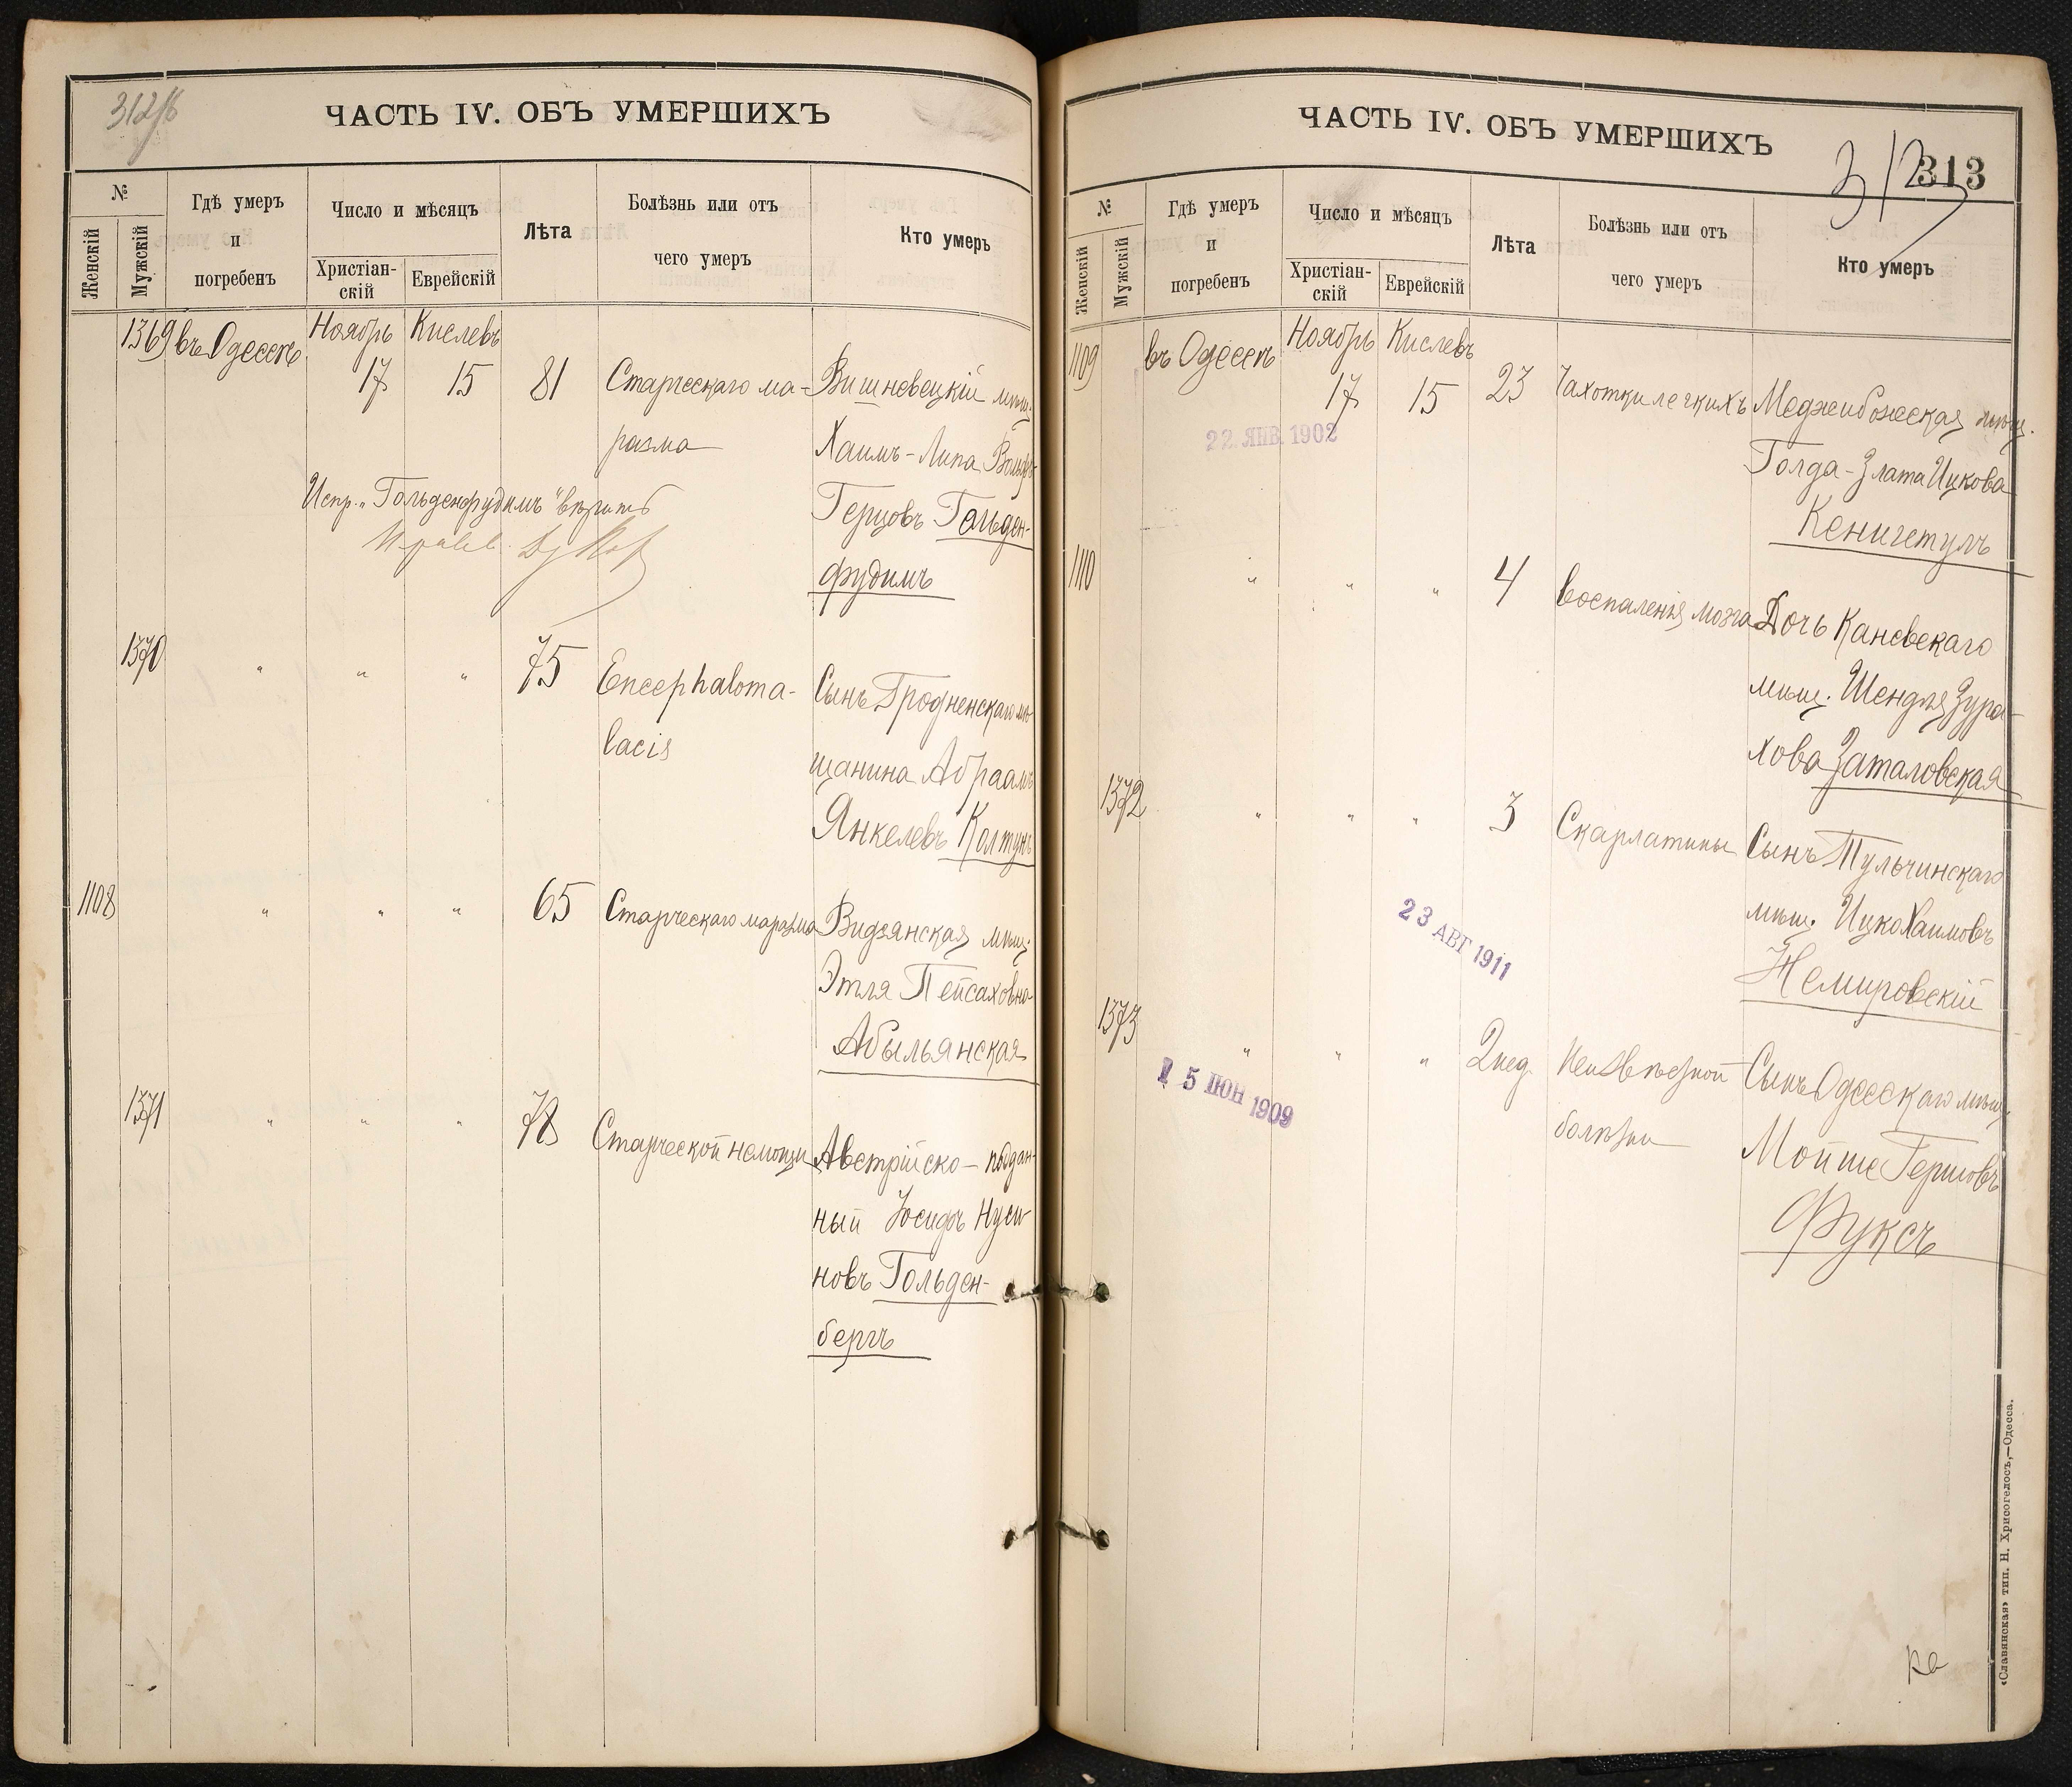 312/б
ЧАСТЬ IV. ОБЪ УМЕРШИХЪ
№
Женскій
Мужскій
Гдѣ умеръ
и
погребенъ
Число и мѣсяцъ
Христіан-
скій
Еврейскій
Лѣта
Болѣзнь или отъ
чего умеръ
Кто умеръ
1369 въ Одессѣ Ноябрь Кислевъ
17 15 81 Старческаго ма- Вишневецкій мѣщ.
разма Хаимъ-Липа Вольфъ
Испр. „Гольденфудимъ" вѣрить Герцовъ Гольден-
фудимъ
1370 " " " 75 Encephaloma- Сынъ Гродненскаго мѣ
lacis щанина Абраамъ
Янкелевъ Колтунъ
1108 " " " 65 Старческаго маразма Видзянская мѣщ.
Этля Пейсаховна
Абыльянская
1371 " " " 78 Старческой немощи Австрійско-поддан-
ный Іосифъ Нуси
новъ Гольден-
бергъ
ЧАСТЬ IV. ОБЪ УМЕРШИХЪ
312 313
№
Женскій
Мужскій
Гдѣ умеръ
и
погребенъ
Число и мѣсяцъ
Христіан-
скій
Еврейскій
Лѣта
Болѣзнь или отъ
чего умеръ
Кто умеръ
1109 въ Одессѣ Ноябрь Кислевъ
17 15 23 Чахотки легкихъ Меджибожская мѣщ.
22. ЯНВ. 1902
Голда-Злата Ицкова
Кенигстулъ
1110 " " " 4 Воспаленія мозга Дочь Каневскаго
мѣщ. Шендля Зура-
хова Заталовская
1372 " " " 3 Скарлатины Сынъ Тульчинскаго
мѣщ. Ицко Хаимовъ
23 АВГ 1911
Немировскій
1373 " " " 2 нед. Неизвѣстной Сынъ Одесскаго мѣщ.
15 ІЮН 1909
болѣзни Мойше Гершовъ
Фуксъ
«Славянская» тип. Н. Хрисогелосъ,—Одесса.